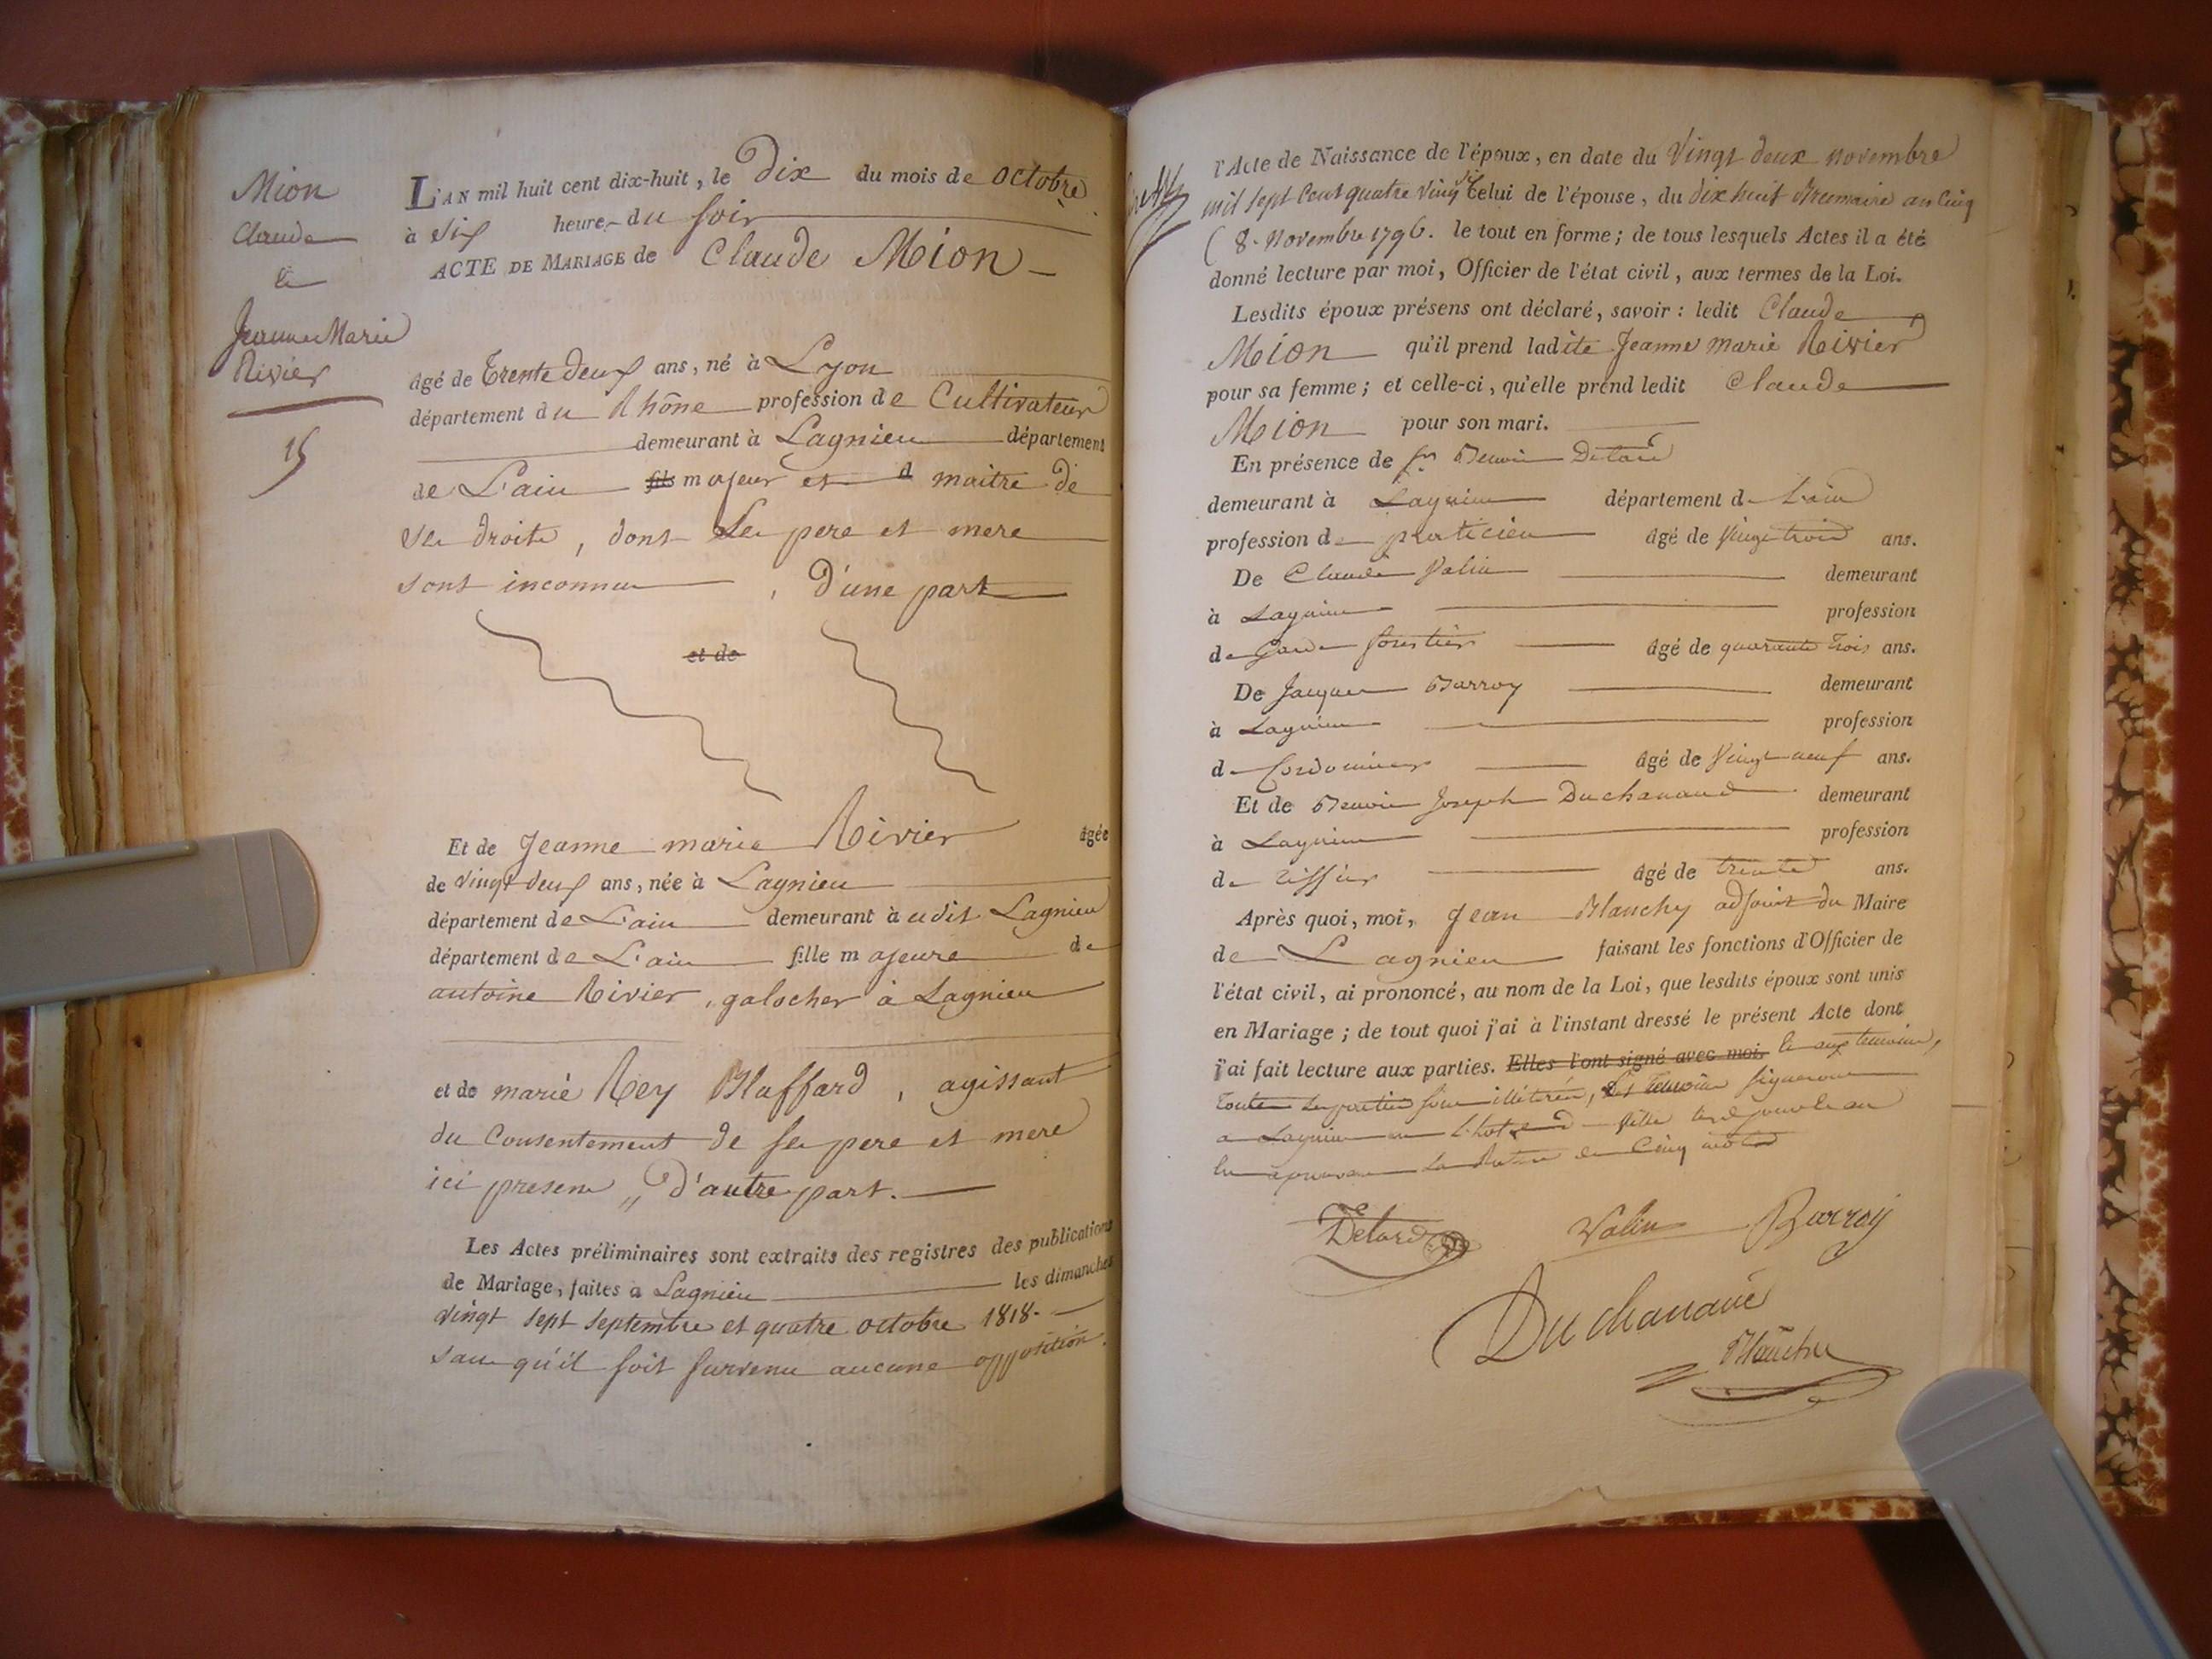 Mion
Claude
&
Jeanne Marie
Rivier
15
L'AN mil huit cent dix-huit, le Dix du mois de Octobre
à Six heure du soir
ACTE DE MARIAGE de Claude Mion
âgé de Trente deux ans, né à Lyon
département du Rhône profession de Cultivateur
demeurant à Lagnieu département
de L'ain fils majeur et maitre de
ses droits, dont les pere et mere
sont inconnus, D'une part
et de
Et de Jeanne marie Rivier âgée
de vingt deux ans, née à Lagnieu
département de L'ain demeurant à udit Lagnieu
département de L'ain fille majeure de
antoine Rivier, galocher à Lagnieu
et de marie Rey Blaffard, agissant
du Consentement de ses pere et mere
ici presens, D'autre part.
Les Actes préliminaires sont extraits des registres des publications
de Mariage, faites à Lagnieu les dimanches
vingt sept septembre et quatre octobre 1818.
sans qu'il soit survenu aucune opposition.
l'Acte de Naissance de l'époux, en date du Vingt deux novembre
mil sept cent quatre vingt six Celui de l'épouse, du dix huit Brumaire an Cinq
(8. Novembre 1796. le tout en forme; de tous lesquels Actes il a été
donné lecture par moi, Officier de l'état civil, aux termes de la Loi.
Lesdits époux présens ont déclaré, savoir: ledit Claude
Mion qu'il prend ladite Jeanne marie Rivier
pour sa femme; et celle-ci, qu'elle prend ledit Claude
Mion pour son mari.
En présence de
demeurant à Lagnieu département de L'ain
profession de praticien âgé de Vingt trois ans.
De Claude Valin demeurant
à Lagnieu profession
de Garde forestier âgé de quarante trois ans.
De Jacques Barroy demeurant
à Lagnieu profession
de Cordonnier âgé de Vingt neuf ans.
Et de Benoit Joseph Duchanaud demeurant
à Lagnieu profession
de tissier âgé de trente ans.
Après quoi, moi, Jean Blanchy adjoint du Maire
de Lagnieu faisant les fonctions d'Officier de
l'état civil, ai prononcé, au nom de la Loi, que lesdits époux sont unis
en Mariage; de tout quoi j'ai à l'instant dressé le présent Acte dont
j'ai fait lecture aux parties. Elles l'ont signé avec moi. & aux temoins,
toutes les parties sont illitérées, les temoins signeront
a Lagnieu en L'hotel de Ville
la rature de Cinq mots
Valin Barroy
Duchanaud